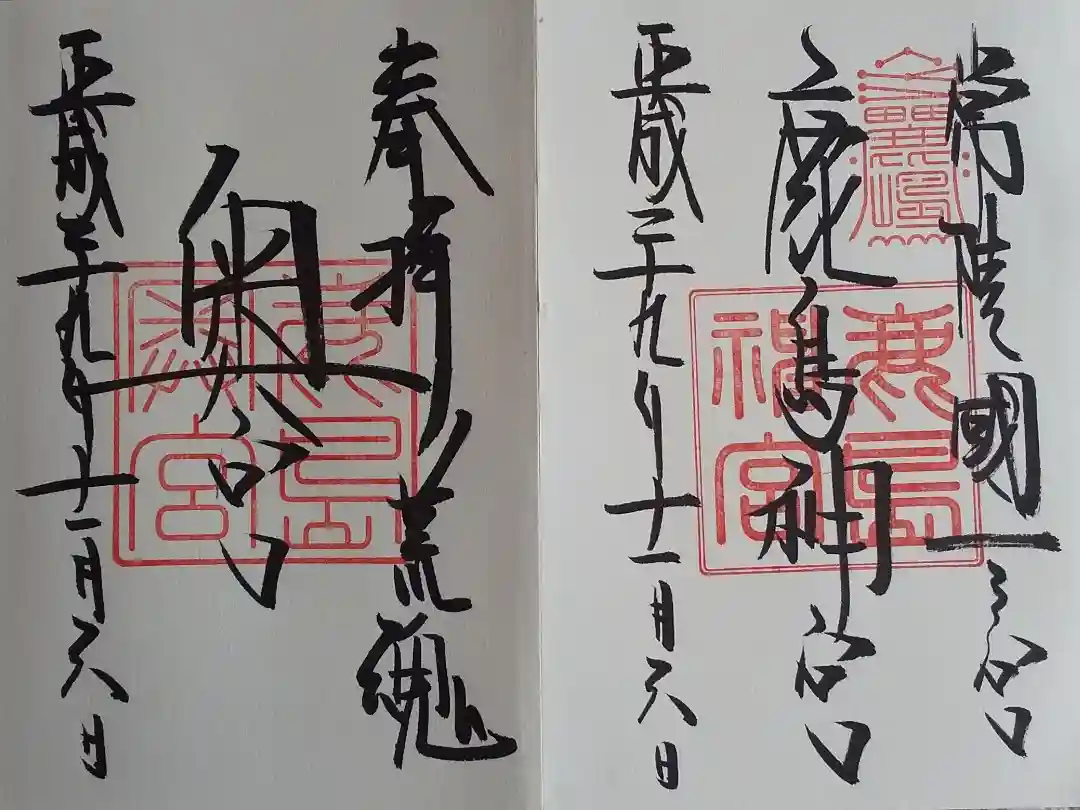 常陸國一之宮
鹿島神宮
平成二十九年十一月六日
鹿島
神宮
奉拝 荒魂
奥宮
平成二十九年十一月六日
鹿島